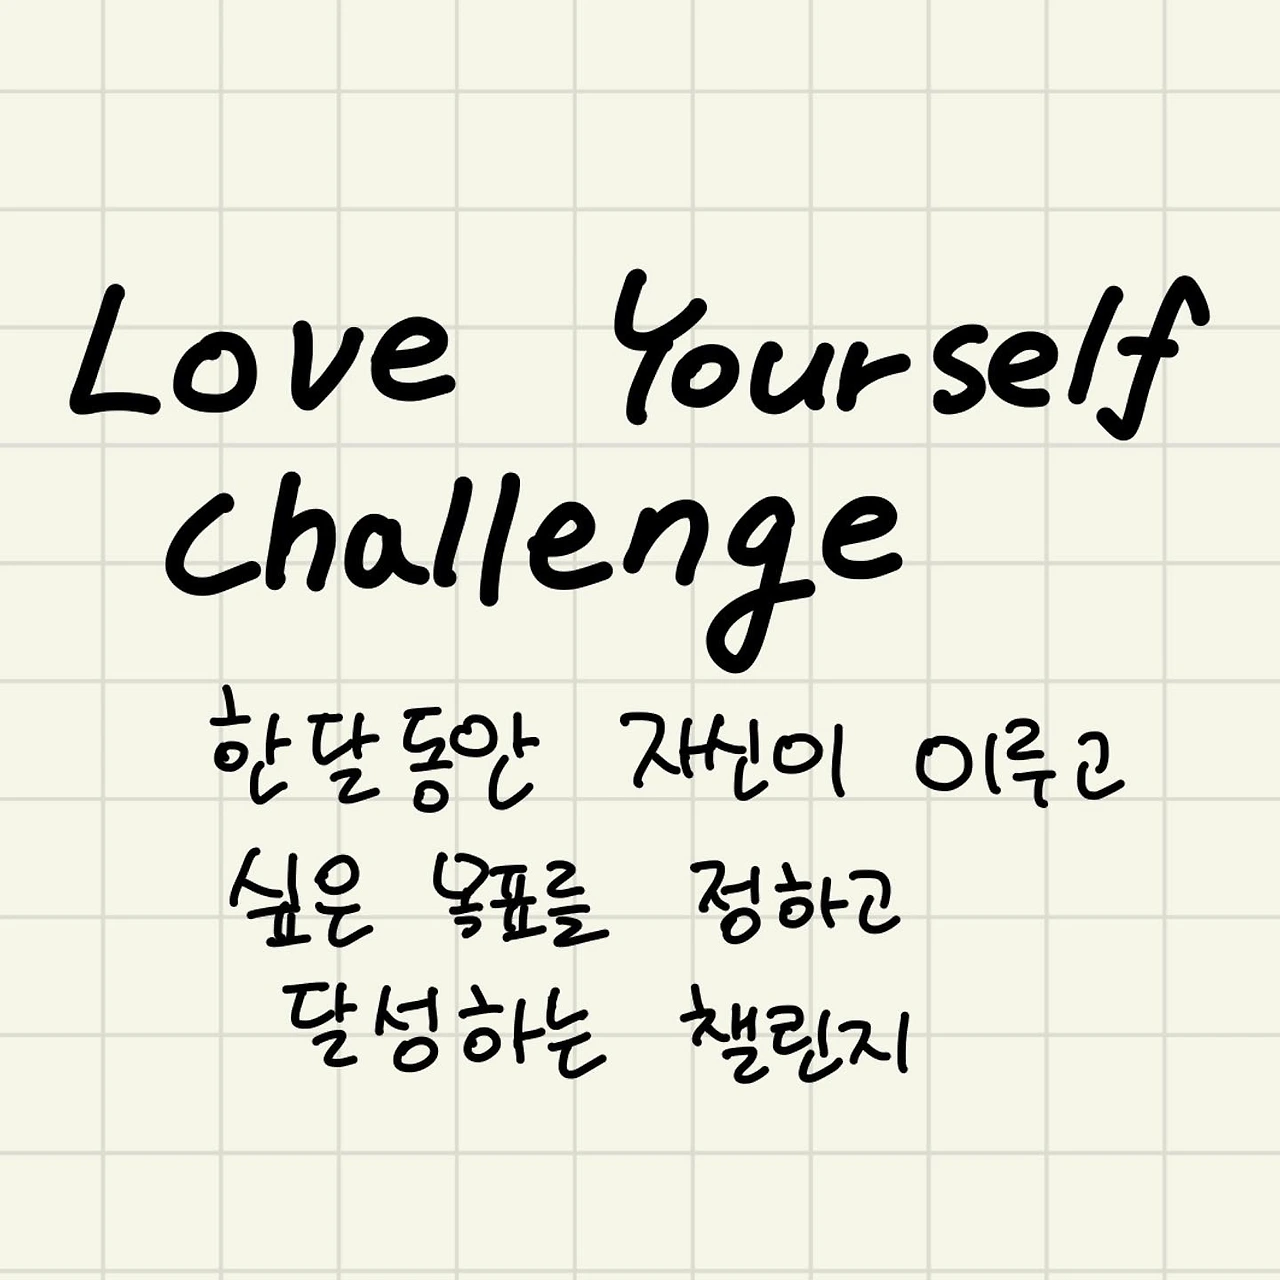 Love Yourself
Challenge
한달동안 자신이 이루고
싶은 목표를 정하고
달성하는 챌린지